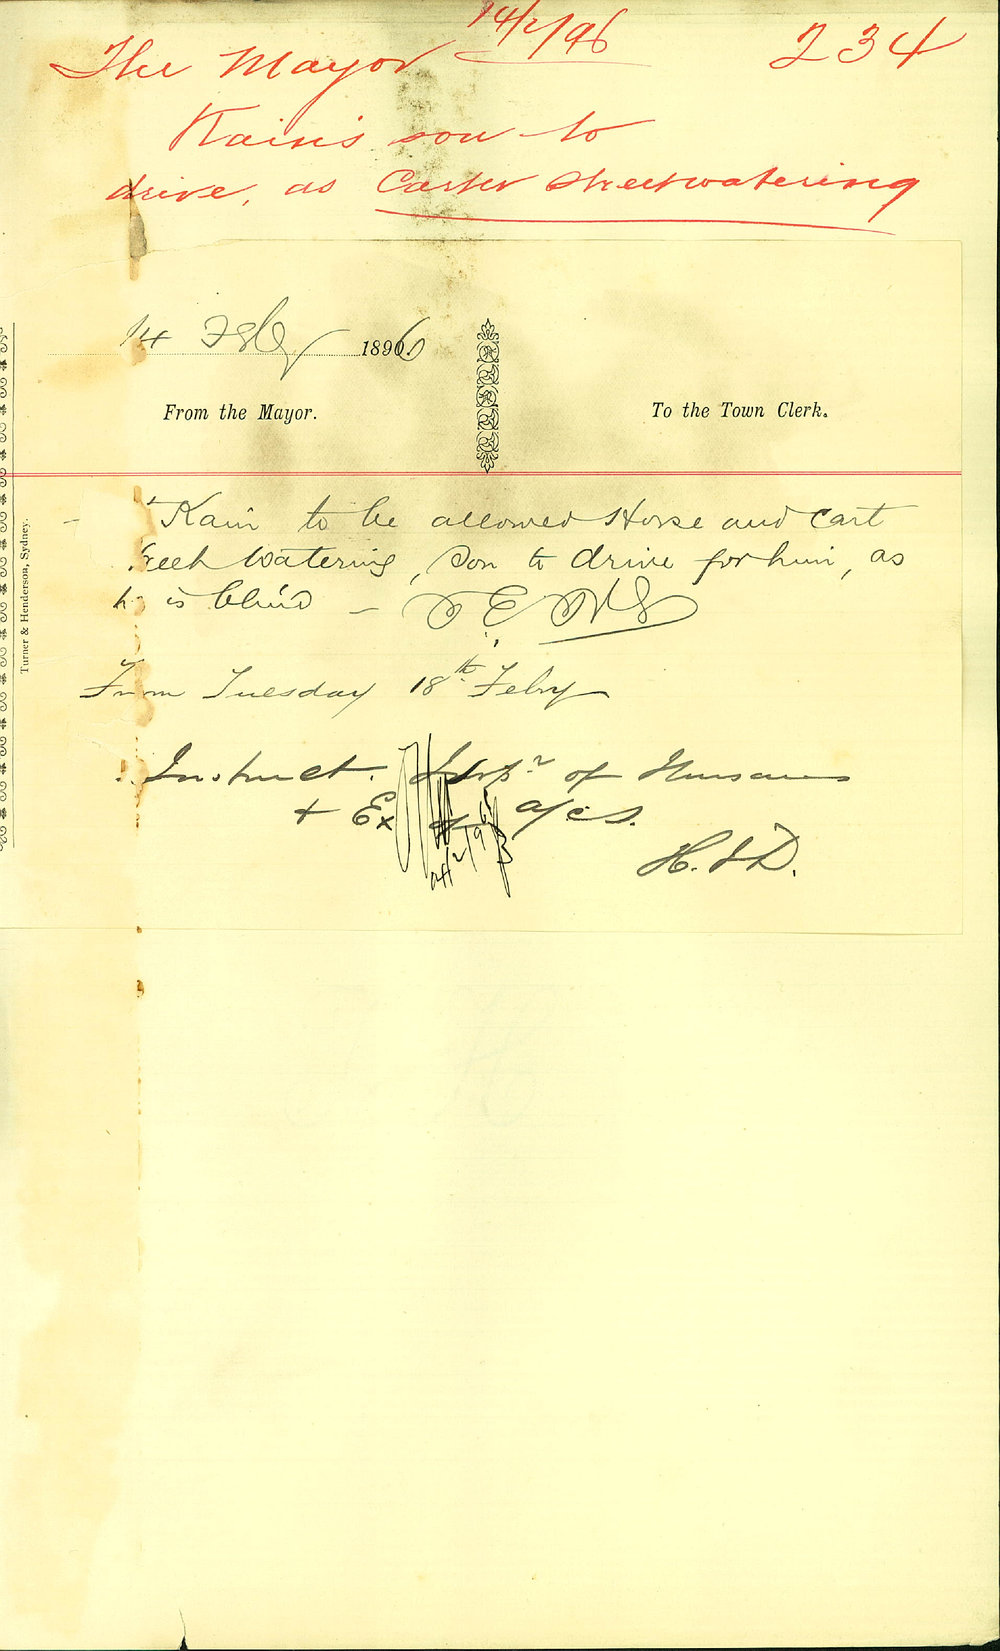 The Mayor 14/2/96 234
Kain's son to
drive, as Carter Streetwatering
14 Feby 1896
From the Mayor. To the Town Clerk.
Kain to be allowed Horse and Cart
reet Watering, Son to drive for him, as
h is blind –
From Tuesday 18th Feby
Instruct. Inspr of Nuisances
+ Ex of a/cs.
H.J.D.
Turner & Henderson, Sydney.